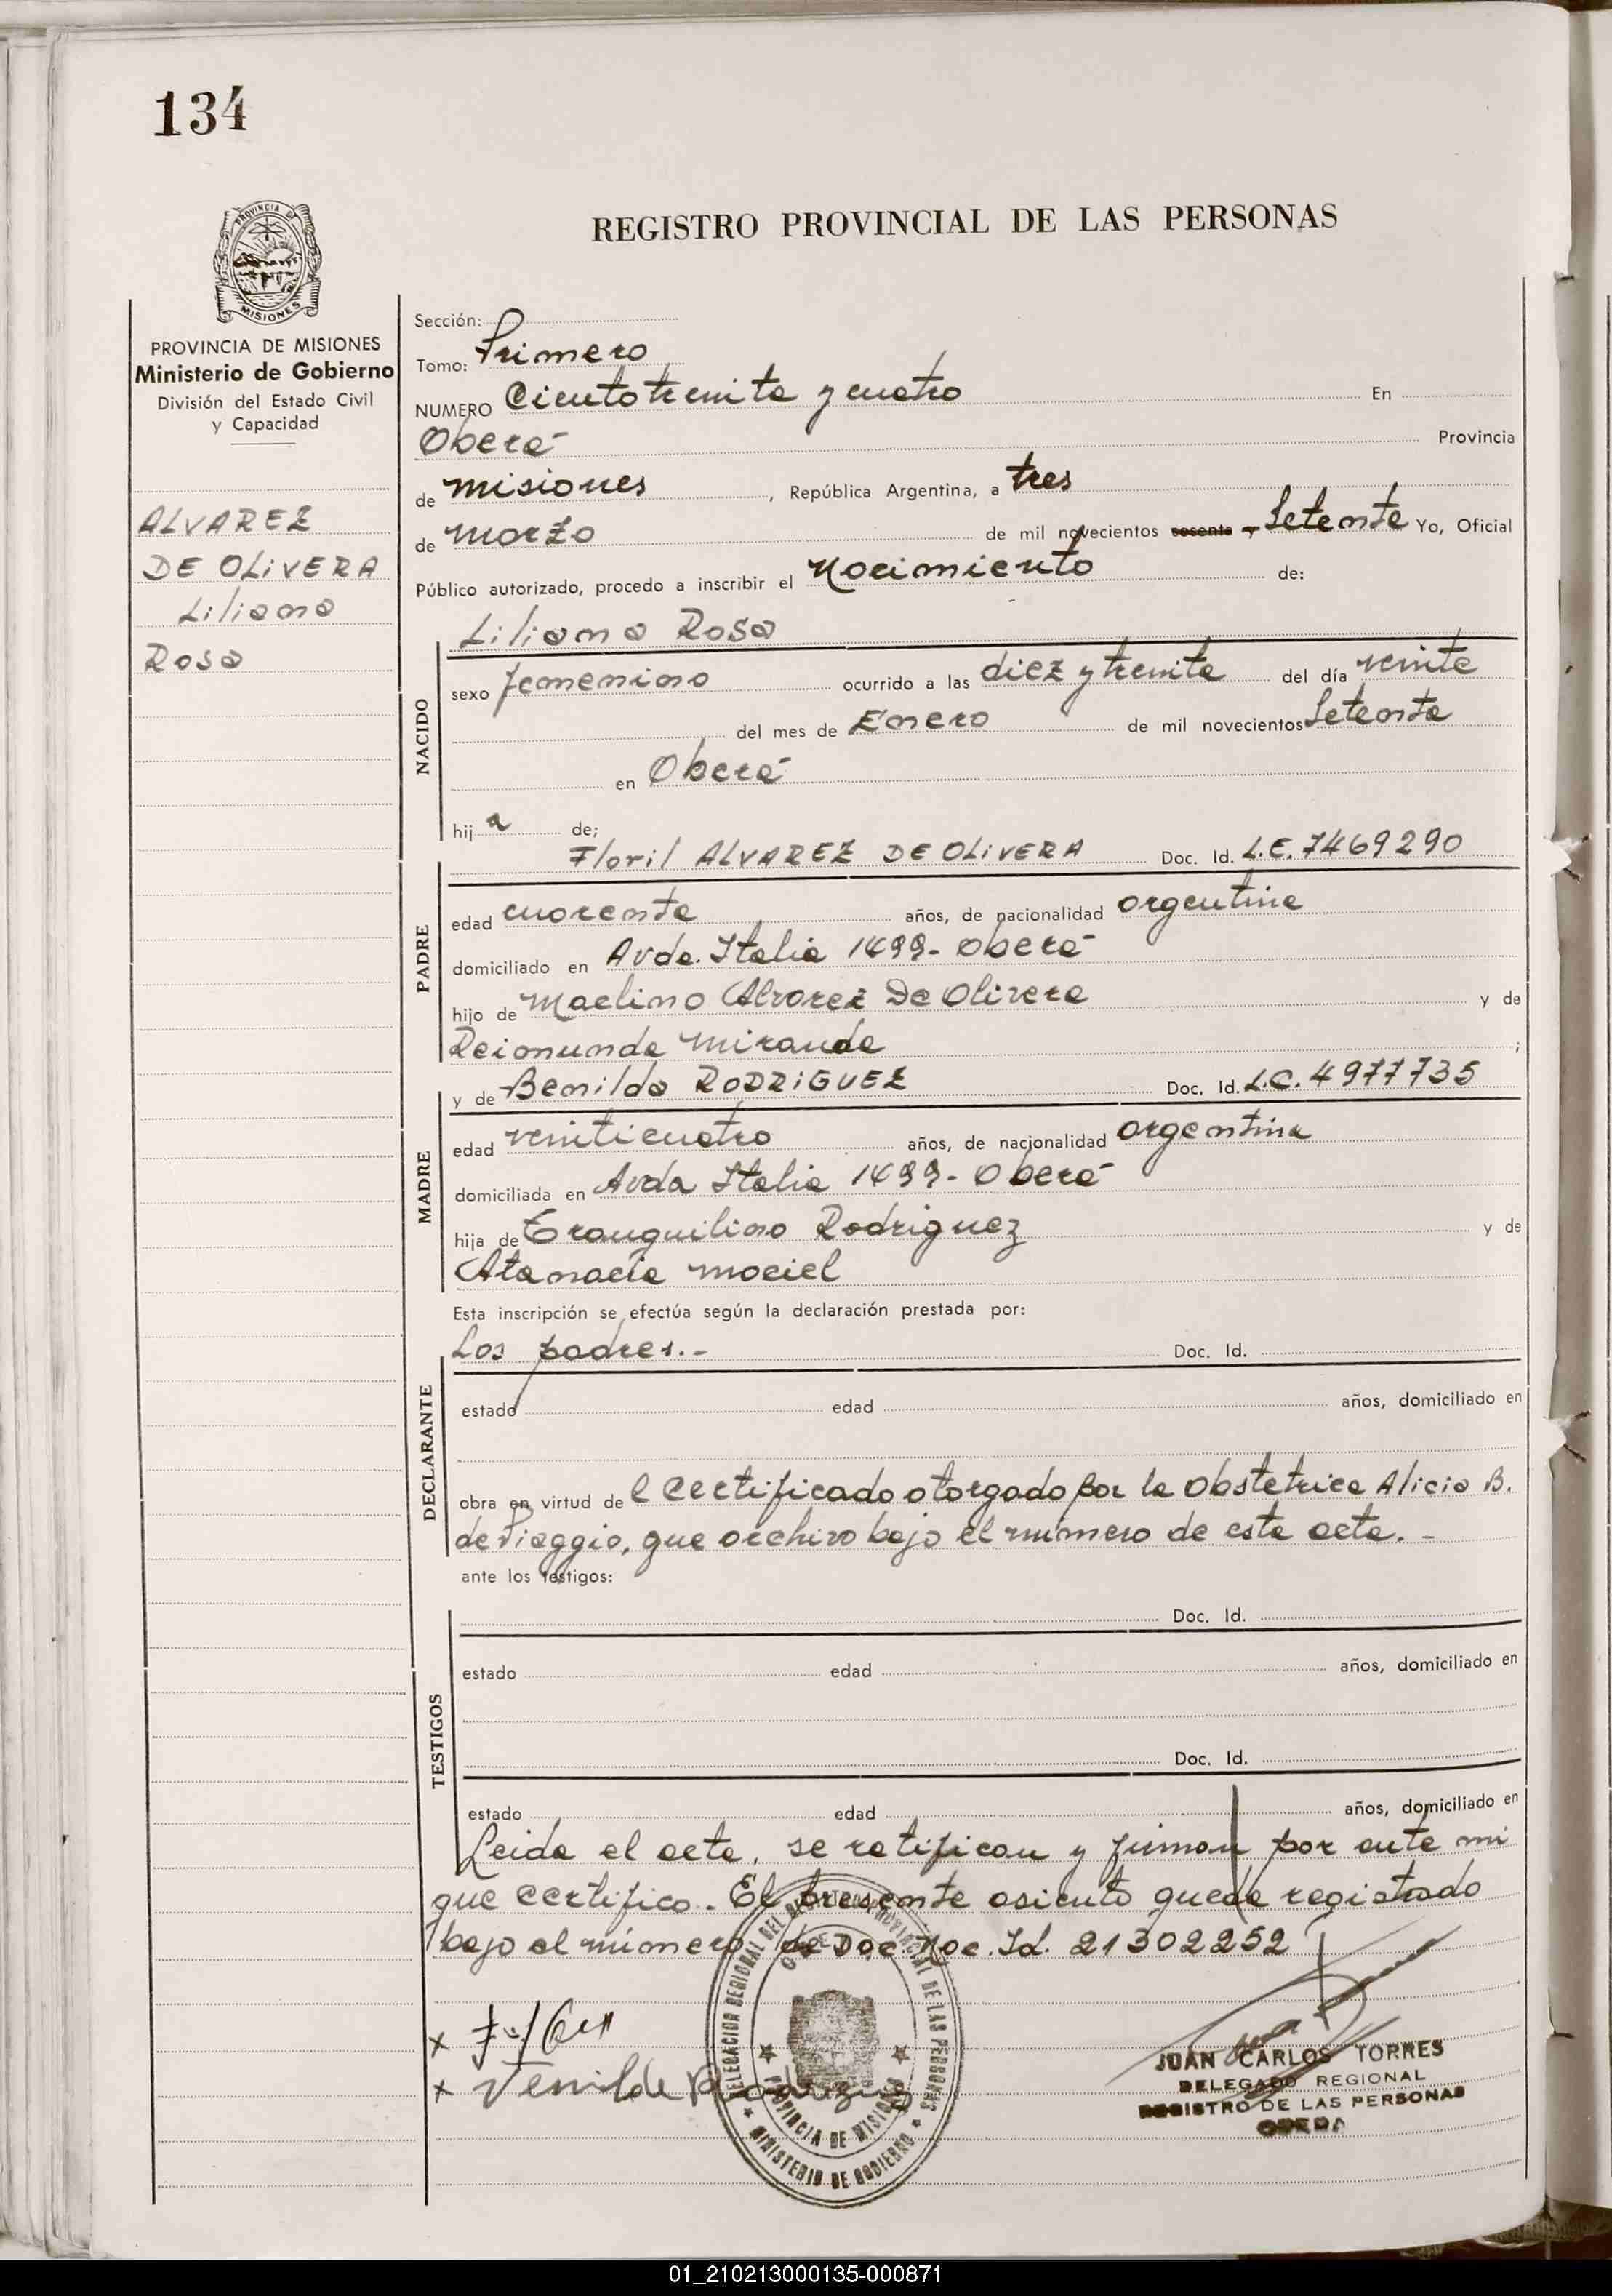 134
PROVINCIA DE
MISIONES
REGISTRO PROVINCIAL DE LAS PERSONAS
PROVINCIA DE MISIONES
Ministerio de Gobierno
División del Estado Civil
y Capacidad
ALVAREZ
DE OLIVERA
Liliana
Rosa
Sección:
Tomo: Primero
NUMERO Ciento treinta y cuatro En
Oberá Provincia
de Misiones, República Argentina, a tres
de Marzo de mil novecientos sesenta y Setenta Yo, Oficial
Público autorizado, procedo a inscribir el Nacimiento de:
Liliana Rosa
NACIDO
sexo femenino ocurrido a las diez y treinta del día veinte
del mes de Enero de mil novecientos Setenta
en Oberá
hija de;
Floril ALVAREZ DE OLIVERA Doc. Id. L.E. 7469290
PADRE
edad cuarenta años, de nacionalidad argentina
domiciliado en Avda. Italia 1499- Oberá
hijo de Maelino Alvarez De Olivera y de
Reimunda Miranda ;
y de Benilda RODRIGUEZ Doc. Id. L.C. 4977735
MADRE
edad veinticuatro años, de nacionalidad argentina
domiciliada en Avda Italia 1499- Oberá
hija de Tranquilino Rodriguez y de
Atanacia Maciel
Esta inscripción se efectúa según la declaración prestada por:
Los padres.- Doc. Id.
DECLARANTE
estado edad años, domiciliado en
obra en virtud de l certificado otorgado por la Obstetrica Alicia B.
de Piaggio, que archivo bajo el número de esta acta. -
ante los testigos:
Doc. Id.
TESTIGOS
estado edad años, domiciliado en
Doc. Id.
estado edad años, domiciliado en
Leida el acta, se ratifican y firman por ante mi
que certifico. El presente asiento queda registrado
bajo el número de Doc Nac. Id. 21302252
x
x Venilde Rodriguez
DELEGACION REGIONAL DEL REGISTRO PROVINCIAL DE LAS PERSONAS
PROVINCIA DE MISIONES
MINISTERIO DE GOBIERNO
JUAN CARLOS TORRES
DELEGADO REGIONAL
REGISTRO DE LAS PERSONAS
OBERA
01_210213000135-000871